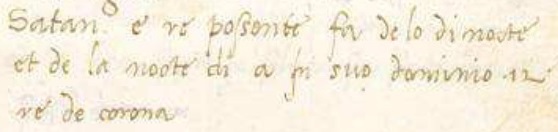 Satan.º e re possente fa de lo di nocte
et de la nocte di a in suo dominio 12
re de corona